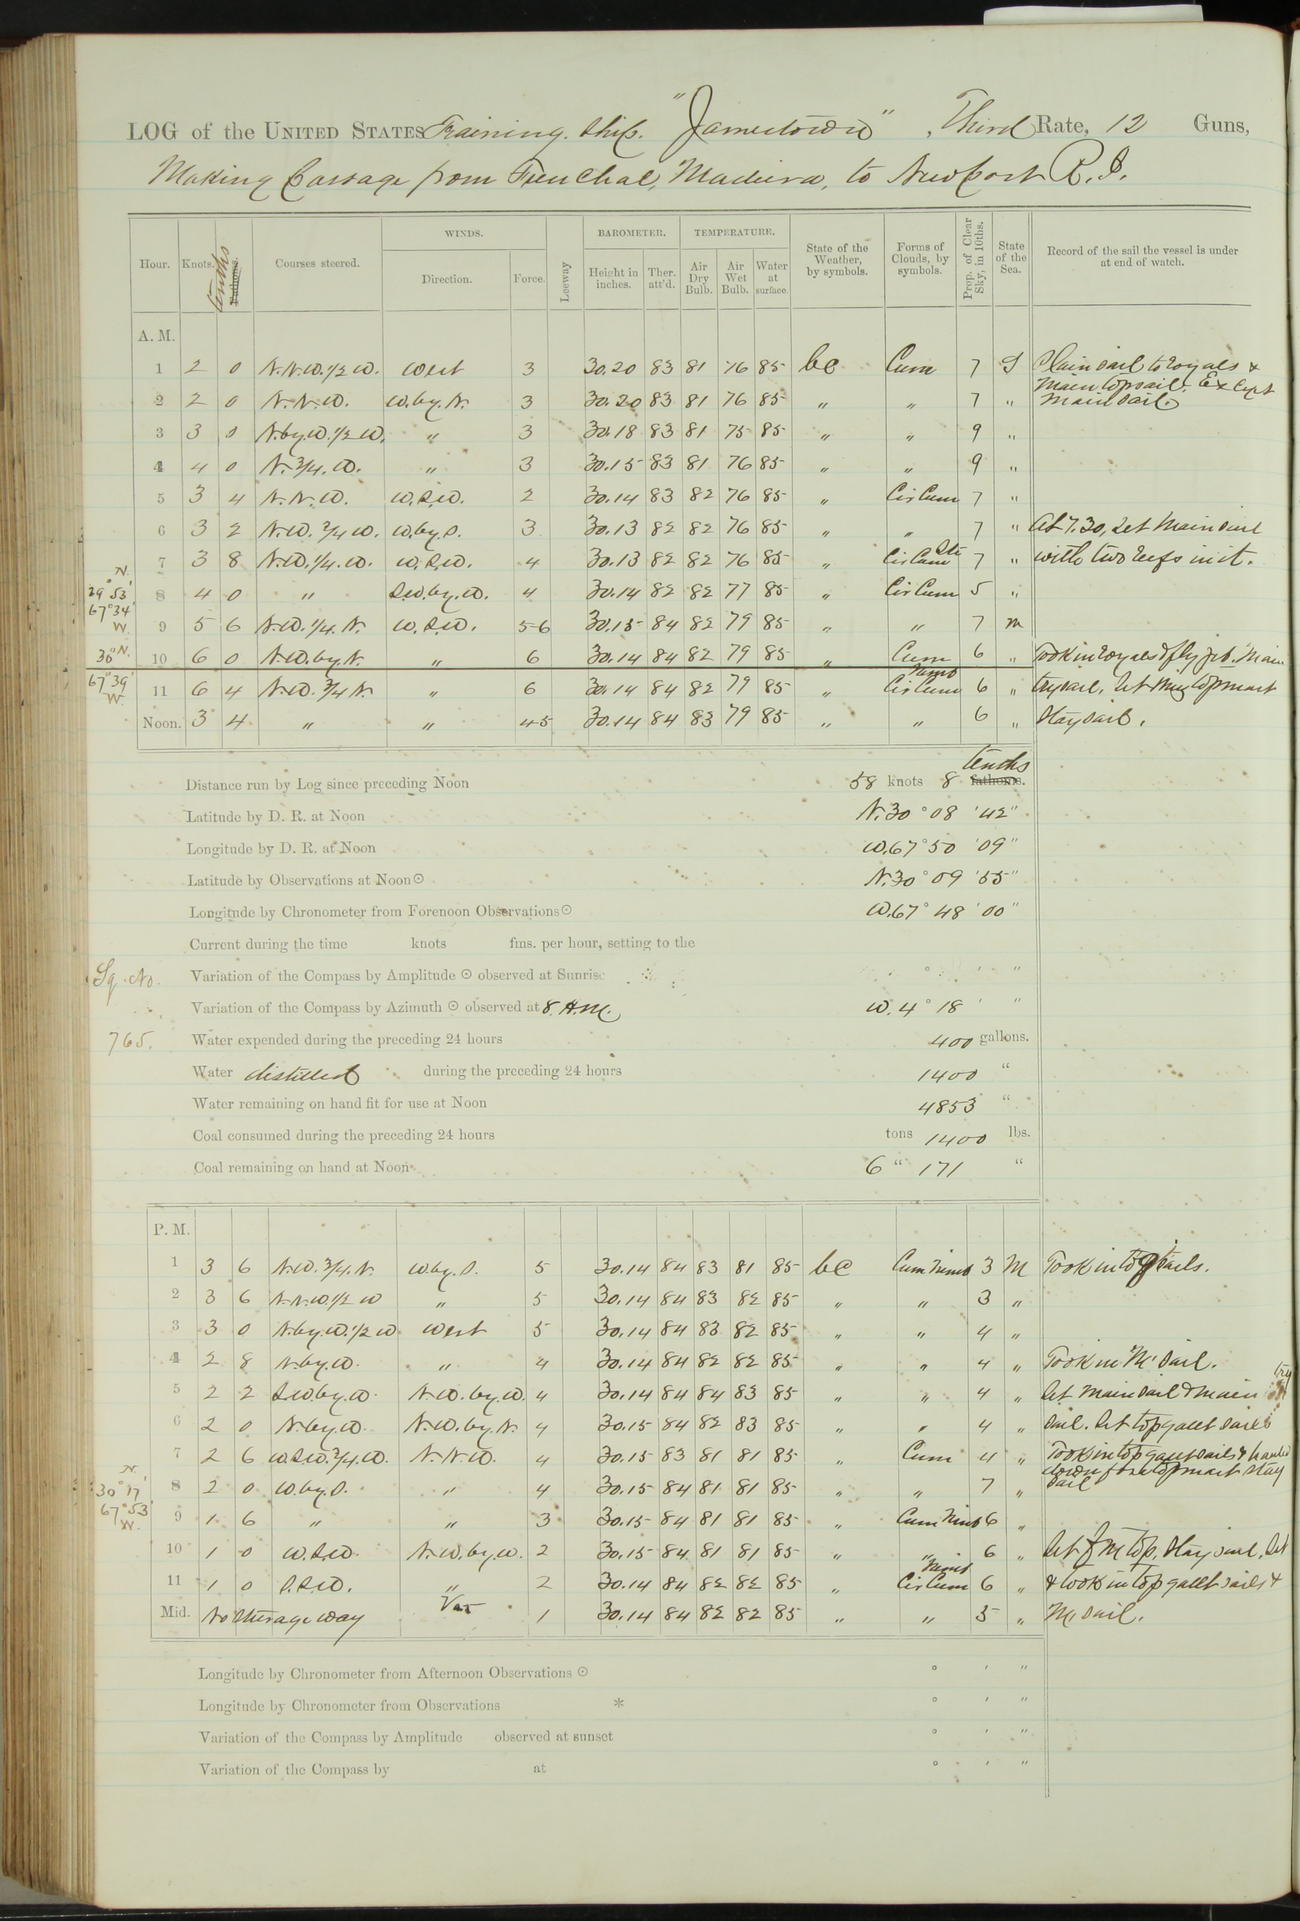 LOG of the UNITED STATES Training Ship "Jamestown", Third Rate, 12 Guns,
Making Passage from Funchal, Madeira, to Newport R.I.
WINDS. BAROMETER. TEMPERATURE.
Hour. Knots. tenths Courses steered. Direction. Force. Leeway Height in inches. Ther. att'd. Air Dry Bulb. Air Wet Bulb. Water at surface. State of the Weather, by symbols. Forms of Clouds, by symbols. Prop. of Clear Sky, in 10ths. State of the Sea. Record of the sail the vessel is under at end of watch.
A. M.
1 2 0 N.N.W.1/2 W. West 3 30.20 83 81 76 85 bc Cum 7 S Plain sail to royals &
Main topsail. Except
2 2 0 N.N.W. W.by.N. 3 30.20 83 81 76 85 " " 7 " Mainsail.
3 3 0 N.by.W.1/2 W. " 3 30.18 83 81 75 85 " " 9 "
4 4 0 N.3/4.W. " 3 30.15 83 81 76 85 " " 9 "
5 3 4 N.N.W. W.S.W. 2 30.14 83 82 76 85 " Cir Cum 7 "
6 3 2 N.W.3/4 W. W.by.S. 3 30.13 82 82 76 85 " " 7 " At 7.30, Set Mainsail
7 3 8 N.W.1/4.W. W.S.W. 4 30.13 82 82 76 85 " Cir Cum Str 7 " with two reefs in it.
N.
29° 53'
67° 34'
W.
8 4 0 " S.W.by.W. 4 30.14 82 82 77 85 " Cir Cum 5 "
9 5 6 N.W.1/4.N. W.S.W. 5-6 30.15 84 82 79 85 " " 7 M
30° N.
67° 39'
W.
10 6 0 N.W.by.N. " 6 30.14 84 82 79 85 " Cum 6 " Took in royals & fly jib. Main
11 6 4 N.W.3/4 N. " 6 30.14 84 82 79 85 " Cir Cum Nimb 6 " trysail. Set Miz topmast
Noon. 3 4 " " 4-5 30.14 84 83 79 85 " " 6 " Staysail.
Distance run by Log since preceding Noon 58 knots 8 tenths fathoms.
Latitude by D. R. at Noon N. 30° 08' 42"
Longitude by D. R. at Noon W. 67° 50' 09"
Latitude by Observations at Noon ☉ N. 30° 09' 55"
Longitude by Chronometer from Forenoon Observations ☉ W. 67° 48' 00"
Current during the time knots fms. per hour, setting to the
Sg. No.
Variation of the Compass by Amplitude ☉ observed at Sunrise ° ' "
Variation of the Compass by Azimuth ☉ observed at 8 A.M. W. 4° 18' "
765.
Water expended during the preceding 24 hours 400 gallons.
Water distilled during the preceding 24 hours 1400 "
Water remaining on hand fit for use at Noon 4853 "
Coal consumed during the preceding 24 hours tons 1400 lbs.
Coal remaining on hand at Noon 6 " 171 "
P. M.
1 3 6 N.W.3/4.N. W.by.S. 5 30.14 84 83 81 85 bc Cum Nimb 3 M Took in tog sails.
2 3 6 N.N.W.1/2 W " 5 30.14 84 83 82 85 " " 3 "
3 3 0 N.by.W.1/2 W. West 5 30.14 84 83 82 85 " " 4 "
4 2 8 N.by.W. " 4 30.14 84 82 82 85 " " 4 " Took in M. sail.
5 2 2 S.W.by.W. N.W.by.W. 4 30.14 84 84 83 85 " " 4 " Set mainsail & main try
6 2 0 N.by.W. N.W.by.N. 4 30.15 84 82 83 85 " " 4 " sail. Set topgallt sails
7 2 6 W.S.W.3/4.W. N.N.W. 4 30.15 83 81 81 85 " Cum 4 " Took in topgallt sails & hauled
down fore topmast stay
N.
30° 17'
67° 53'
W.
8 2 0 W.by.S. " 4 30.15 84 81 81 85 " " 7 " sail
9 1 6 " " 3 30.15 84 81 81 85 " Cum Nimb 6 "
10 1 0 W.S.W. N.W.by.W. 2 30.15 84 81 81 85 " " 6 " Set f M top. Staysail. Set
11 1 0 S.S.W. " 2 30.14 84 82 82 85 " Cir Cum Nimb 6 " & took in top gallt sails &
Mid. No Steerage way Var 1 30.14 84 82 82 85 " " 5 " M. sail.
Longitude by Chronometer from Afternoon Observations ☉ ° ' "
Longitude by Chronometer from Observations * ° ' "
Variation of the Compass by Amplitude observed at sunset ° ' "
Variation of the Compass by at ° ' "